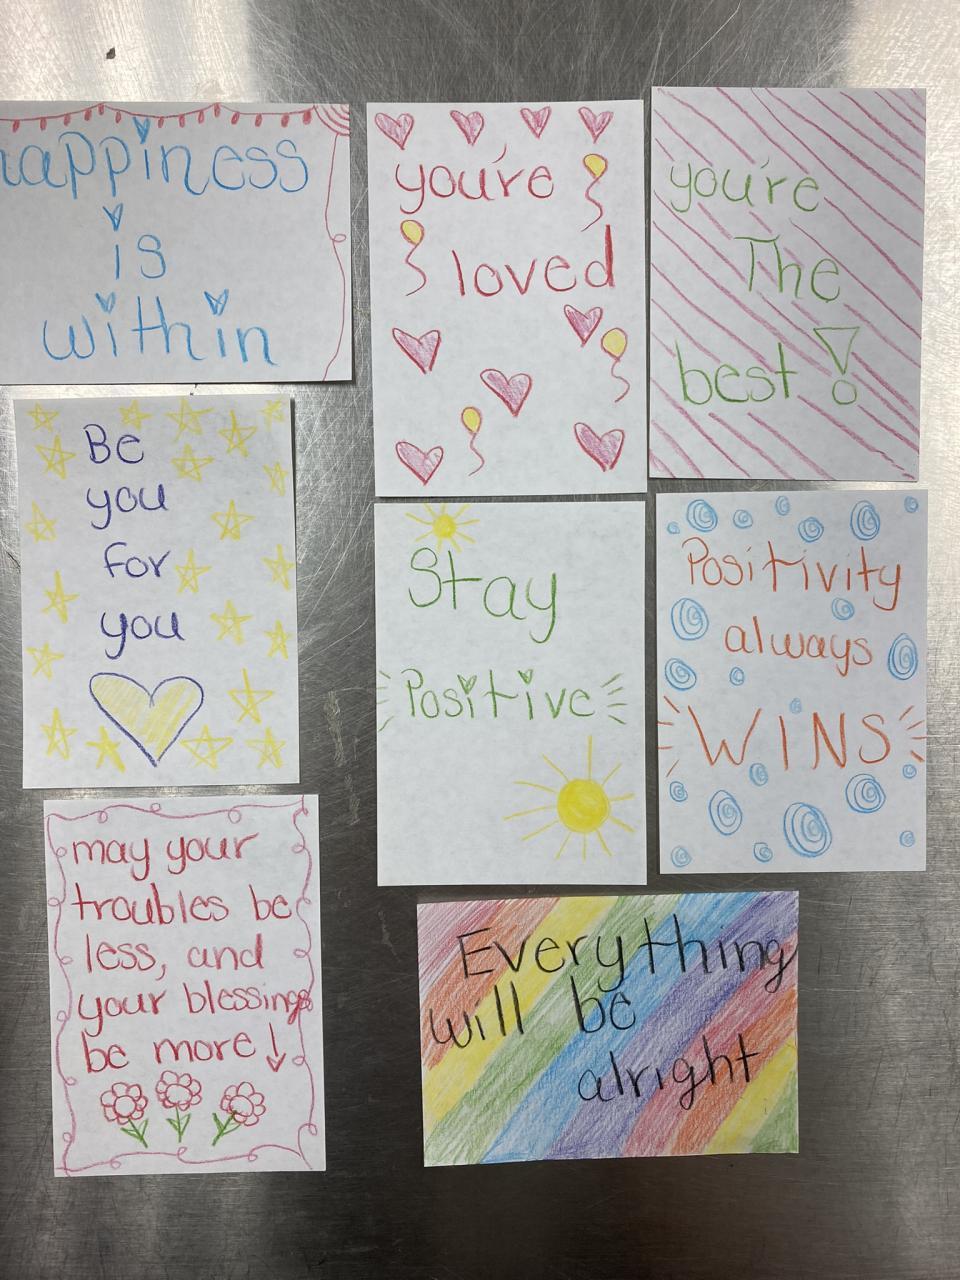 happiness
is
within
you're
loved
you're
The
best!
Be
you
for
you
Stay
Positive
Positivity
always
WINS
may your
troubles be
less, and
your blessings
be more!
Everything
will be
alright